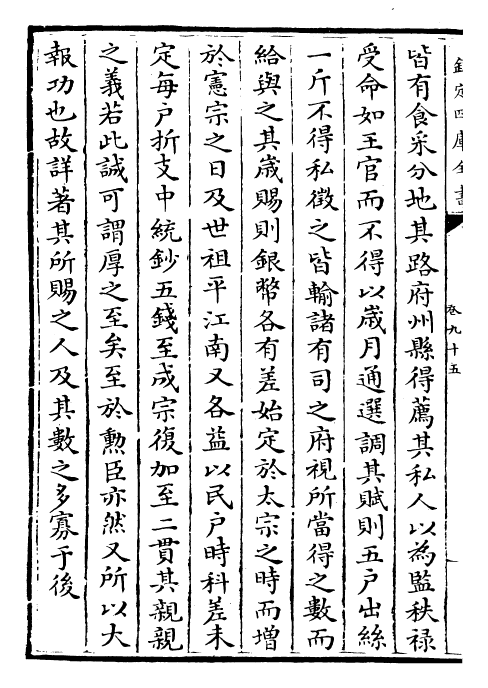 欽定四庫全書
卷九十五
皆有食采分地其路府州縣得薦其私人以為監秩禄
受命如王官而不得以歲月通選調其賦則五户出絲
一斤不得私徵之皆輸諸有司之府視所當得之數而
給與之其歲賜則銀幣各有差始定於太宗之時而增
於憲宗之日及世祖平江南又各益以民户時科差未
定每户折支中統鈔五錢至成宗復加至二貫其親親
之義若此誠可謂厚之至矣至於勲臣亦然又所以大
報功也故詳著其所賜之人及其數之多寡于後